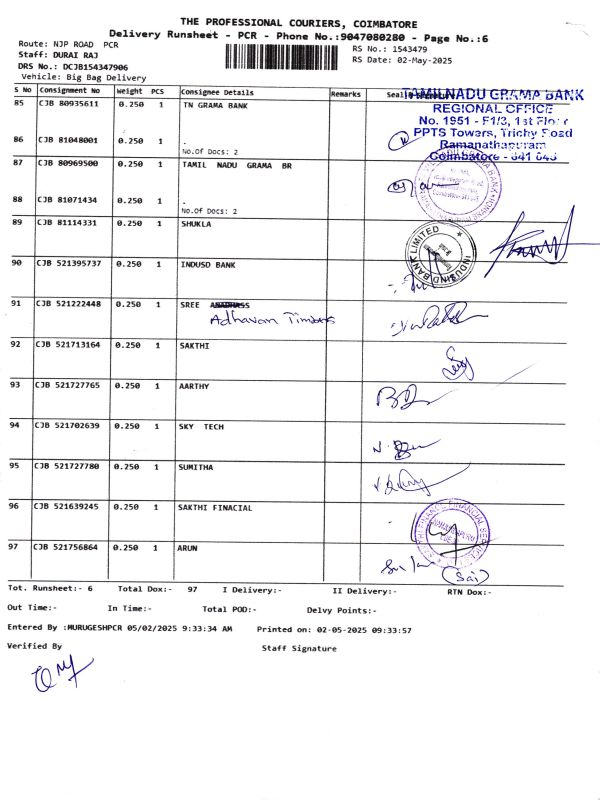 THE PROFESSIONAL COURIERS, COIMBATORE
Delivery Runsheet - PCR - Phone No.:9047080280 - Page No.:6
Route: NJP ROAD PCR
RS No.: 1543479
Staff: DURAI RAJ
RS Date: 02-May-2025
DRS No.: DCJB154347906
Vehicle: Big Bag Delivery
S No Consignment No Weight PCS Consignee Details Remarks
85 CJB 80935611 0.250 1 TN GRAMA BANK
TAMILNADU GRAMA BANK
REGIONAL OFFICE
No. 1951 - F1/3, 1st Floor
PPTS Towers, Trichy Road
Ramanathapuram
Coimbatore - 641 045
86 CJB 81048001 0.250 1 .
No.Of Docs: 2
87 CJB 80969500 0.250 1 TAMIL NADU GRAMA BR
88 CJB 81071434 0.250 1 .
No.Of Docs: 2
89 CJB 81114331 0.250 1 SHUKLA
90 CJB 521395737 0.250 1 INDUSD BANK
INDUSIND BANK LIMITED
91 CJB 521222448 0.250 1 SREE
Adhavan Timbers
92 CJB 521713164 0.250 1 SAKTHI
93 CJB 521727765 0.250 1 AARTHY
94 CJB 521702639 0.250 1 SKY TECH
95 CJB 521727780 0.250 1 SUMITHA
96 CJB 521639245 0.250 1 SAKTHI FINACIAL
97 CJB 521756864 0.250 1 ARUN
(Sai)
Tot. Runsheet:- 6 Total Dox:- 97 I Delivery:- II Delivery:- RTN Dox:-
Out Time:- In Time:- Total POD:- Delvy Points:-
Entered By :MURUGESHPCR 05/02/2025 9:33:34 AM Printed on: 02-05-2025 09:33:57
Verified By Staff Signature